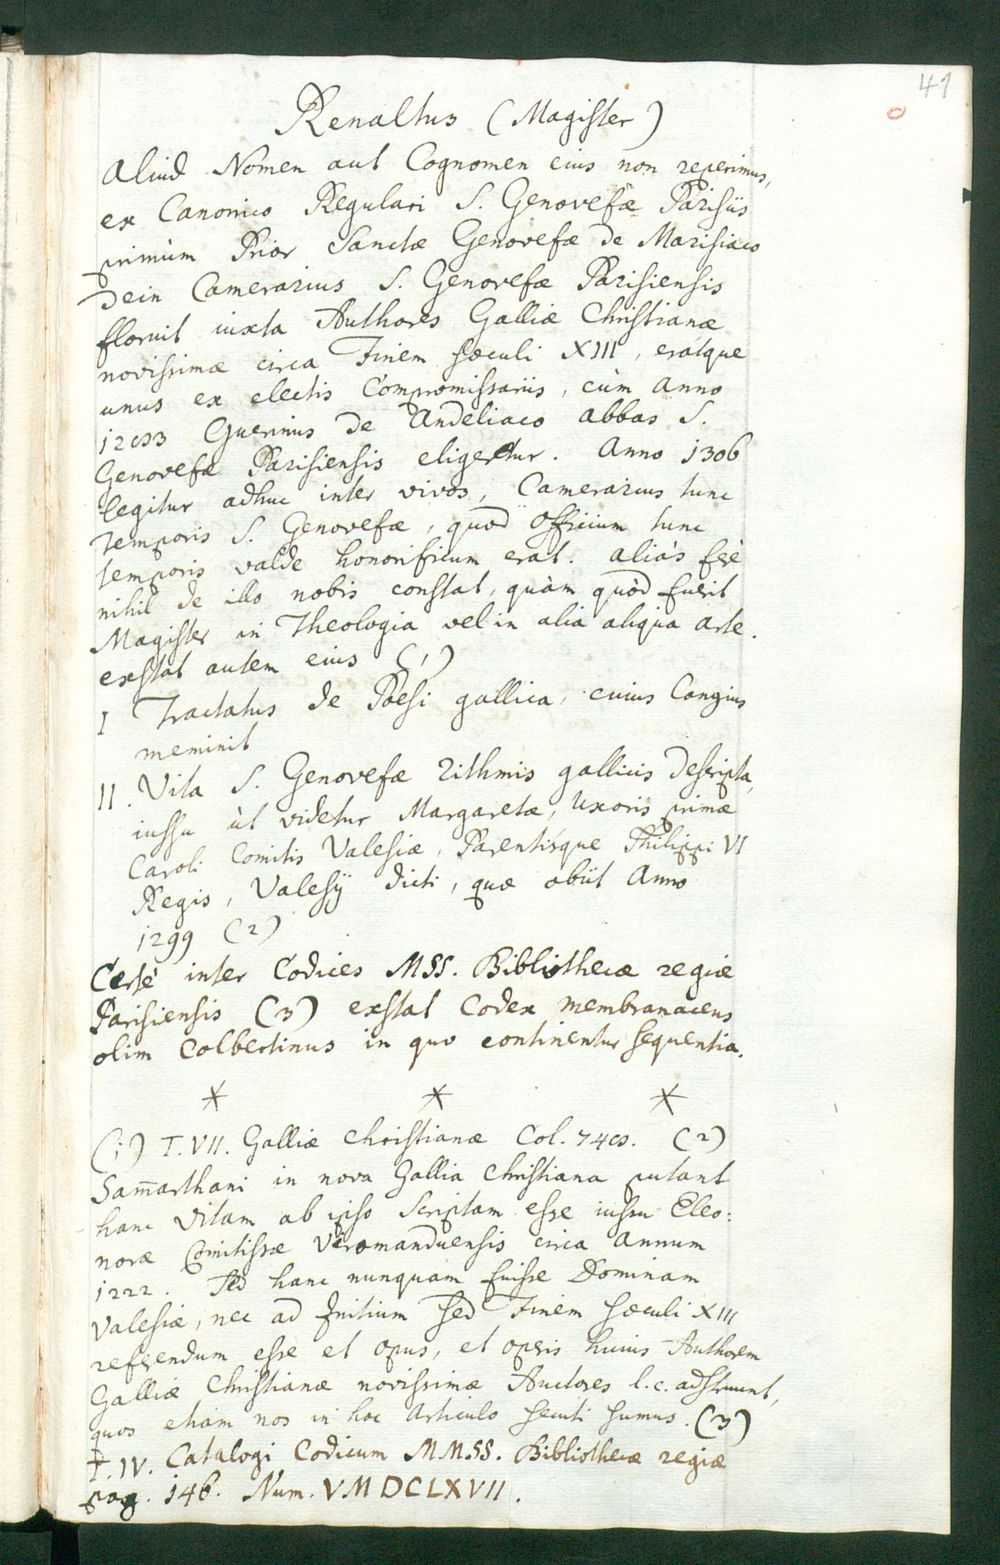 41
Renaltus (Magister)
Aliud Nomen aut Cognomen eius non reperimus,
ex Canonico Regulari S. Genovefæ Parisiis
primùm Prior Sanctæ Genovefæ de Marisiaco
dein Camerarius S. Genovefæ Parisiensis
floruit iuxta Authores Galliæ Christianæ
novissimæ circa Finem sæculi XIII, eratque
unus ex electis Compromissariis, cùm Anno
Guerinus de Andeliaco abbas S.
Genovefæ Parisiensis eligeretur. Anno 1306
legitur adhuc inter vivos, Camerarius tunc
temporis S. Genovefæ, quod officium tunc
temporis valde honorificum erat. aliàs ferè
nihil de illo nobis constat, quàm quòd fuerit
Magister in Theologia vel in alia aliqua Arte.
exstat autem eius (1)
I Tractatus de Poesi gallica, cuius Cangius
meminit
II. Vita S. Genovefæ rithmis gallicis descripta,
iussu ùt videtur Margaretæ, Uxoris primæ
Caroli Comitis Valesiæ, Parentisque Philippi VI
Regis, Valesij dicti, quæ obiit Anno
1299 (2)
Certè inter Codices MSS. Bibliothecæ regiæ
Parisiensis (3) exstat Codex membranaceus
olim Colbertinus in quo continentur sequentia.
* * *
(1) T. VII. Galliæ Christianæ Col. (2)
Sam̄arthani in nova Gallia Christiana putant
hanc Vitam ab ipso Scriptam esse iussu Eleo:
noræ Comitissæ Veromanduensis circa Annum
1222. Sed hanc nunquam fuisse Dominam
Valesiæ, nec ad Initium sed Finem sæculi XIII
referendum esse et opus, et operis huius Authorem
Galliæ Christianæ novissimæ Auctores l. c. adstruunt,
quos etiam nos in hoc Articulo secuti sumus. (3)
T. IV. Catalogi Codicum MMSS. Bibliothecæ regiæ
pag. 146. Num. VMDCLXVII.